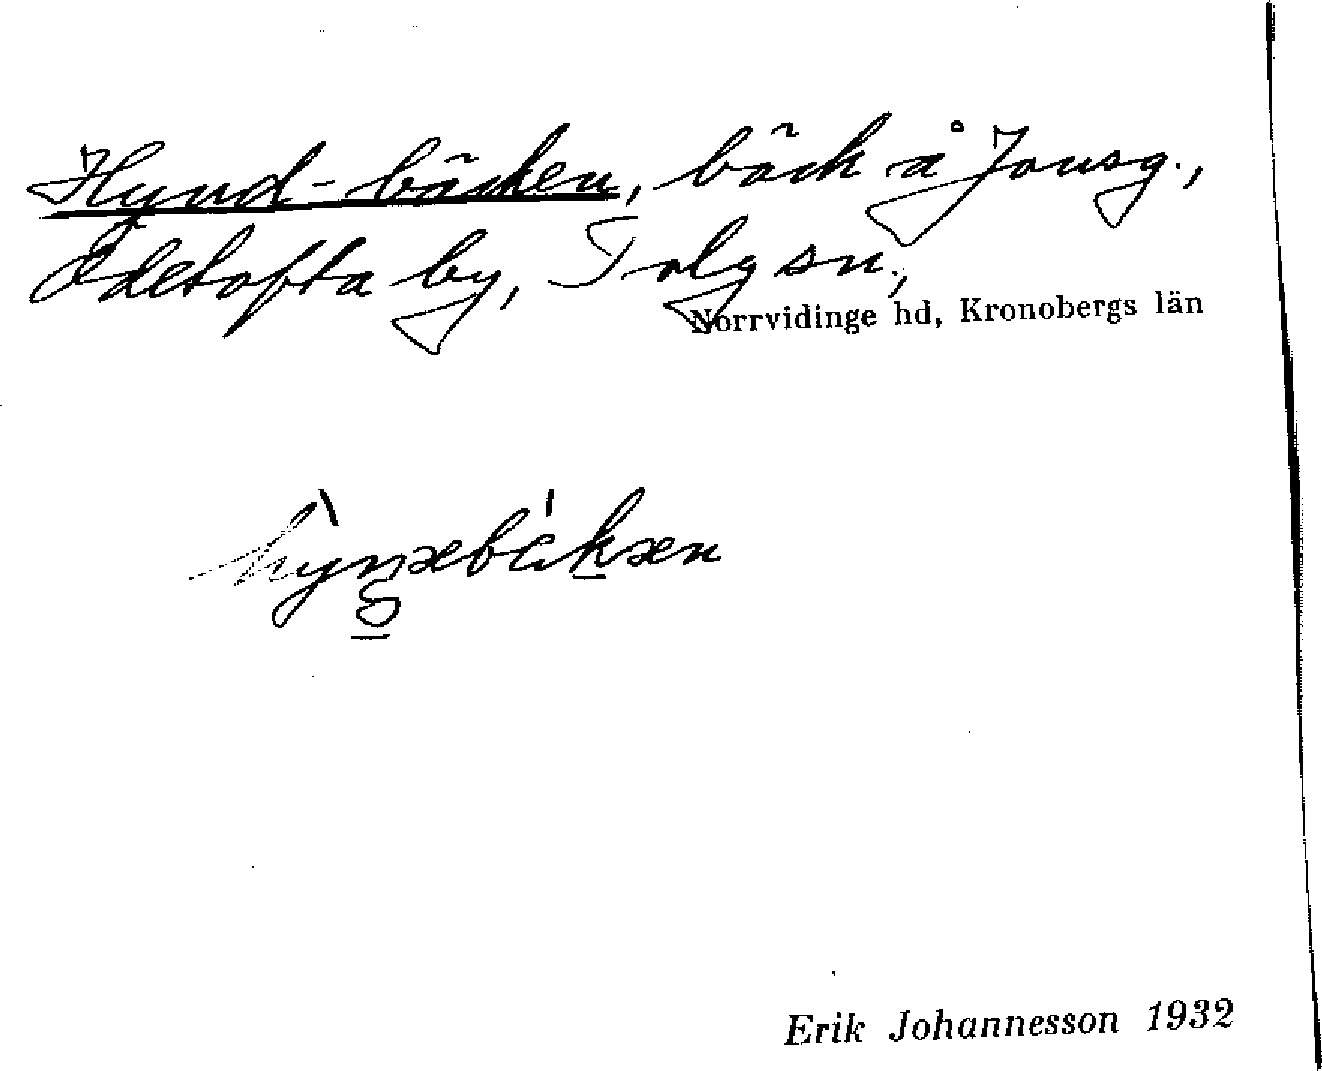 Hynd-bäcken, bäck å Jonsg.,
Ödetofta by, Tolg sn.,
Norrvidinge hd, Kronobergs län
Erik Johannesson 1932